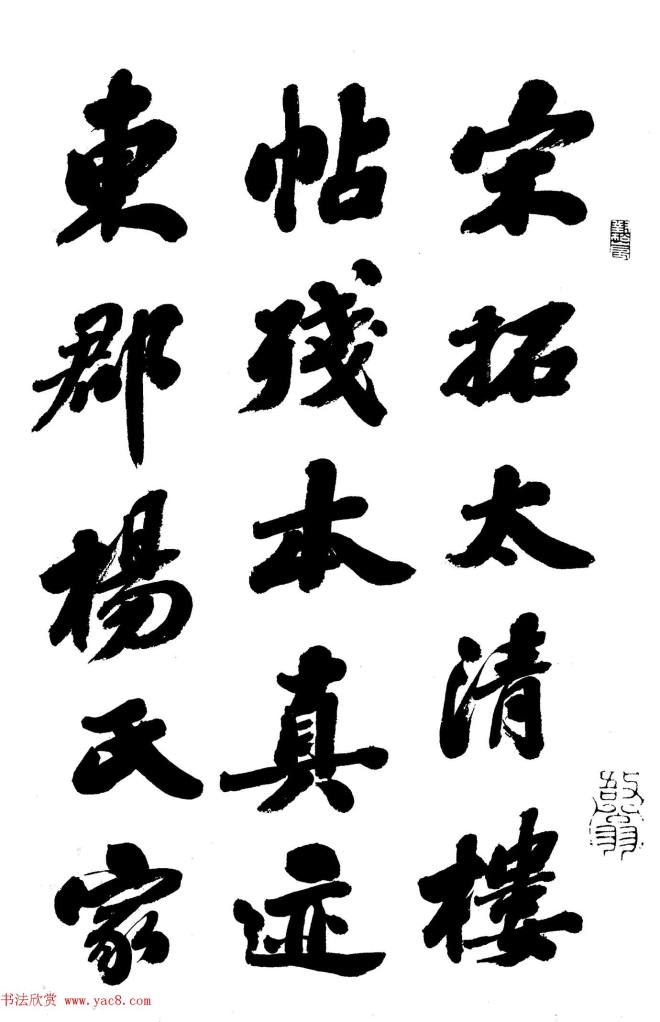 宋拓太清樓
帖殘本真迹
東郡楊氏家
书法欣赏 www.yac8.com